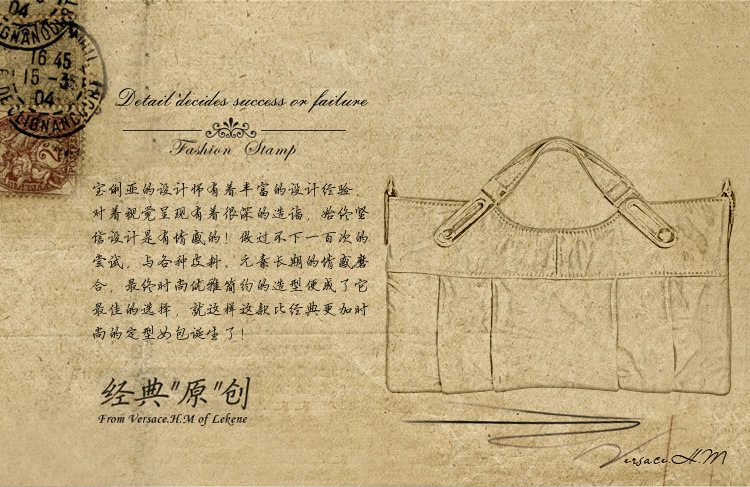 04
LIGNANCOURT
16 45
15-3
04
DE CLIGNANCOURT
Detail decides success or failure
Fashion Stamp
宝俐亚的设计师有着丰富的设计经验，
对着视觉呈现有着很深的造诣，始终坚
信设计是有情感的！做过不下一百次的
尝试，与各种皮料、元素长期的情感磨
合，最终时尚优雅简约的造型便成了它
最佳的选择，就这样这款比经典更加时
尚的定型女包诞生了！
经典"原"创
From Versace.H.M of Lekene
Versace.H.M